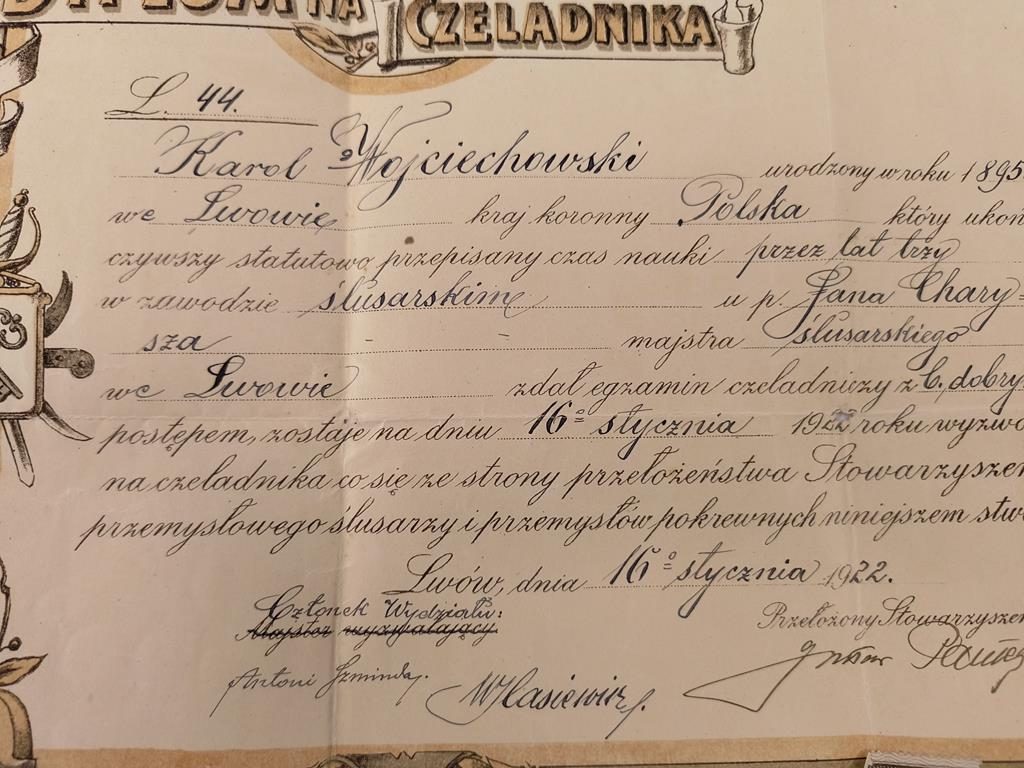 DYPLOM NA CZELADNIKA
L. 44.
Karol Wojciechowski urodzony w roku 1895
we Lwowie kraj koronny Polska który ukoń
czywszy statutowo przepisany czas nauki przez lat trzy
w zawodzie ślusarskim u p. Jana Chary=
sza - - majstra ślusarskiego
we Lwowie zdał egzamin czeladniczy z b. dobry
postępem, zostaje na dniu 16º stycznia 1922 roku wyzwo
na czeladnika co się ze strony przełożeństwa Stowarzyszen
przemysłowego ślusarzy i przemysłów pokrewnych niniejszem stw
Lwów, dnia 16º stycznia 1922.
Członek Wydziału:
Majster wyzwalający. Przełożony Stowarzyszen
Antoni Szminda.